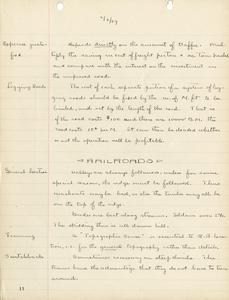 4/2/07
Expense justi-
fied
Depends directly on the amount of traffic. Mult-
iply the saving in cost of freight per ton × no. tons hauled
and compare with the interest on the investment in
the improved road.
Logging Roads
The cost of each separate portion of a system of log-
ging roads should be fixed by the no. of M. ft. to be
hauled, and not by the length of the road. Thus if
the road costs $100 and there are 1000 M B.M. the
road costs 10¢ per M. It can then be decided whether
or not the operation will be profitable.
RAILROADS
General Location
Valleys are always followed, unless for some
special reason, the ridge must be followed. Thus
merchants may be had, or else the timber may all be
on the top of the ridge.
Grades are best along streams. Seldom over 2%.
The skidding then is all down hill.
Running
A "Topographic Sense" is essential to R.R. loca-
tion, i.e. for the general topography rather than details.
Switchbacks
Sometimes necessary on steep grades. The
trains have the advantage that they do not have to turn
around.
11